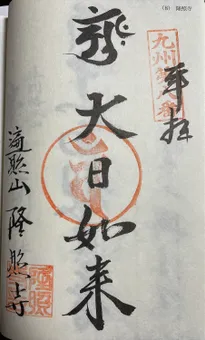 (8) 隆照寺
奉拝
九州第八番
大日如来
遍照山 隆照寺